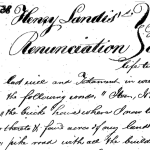 Henry Landis'
Renunciation
last will and Testament in wor
the following words "Item, H
the brick house where I now li
thereto & four acres of my land
pike road with all the build